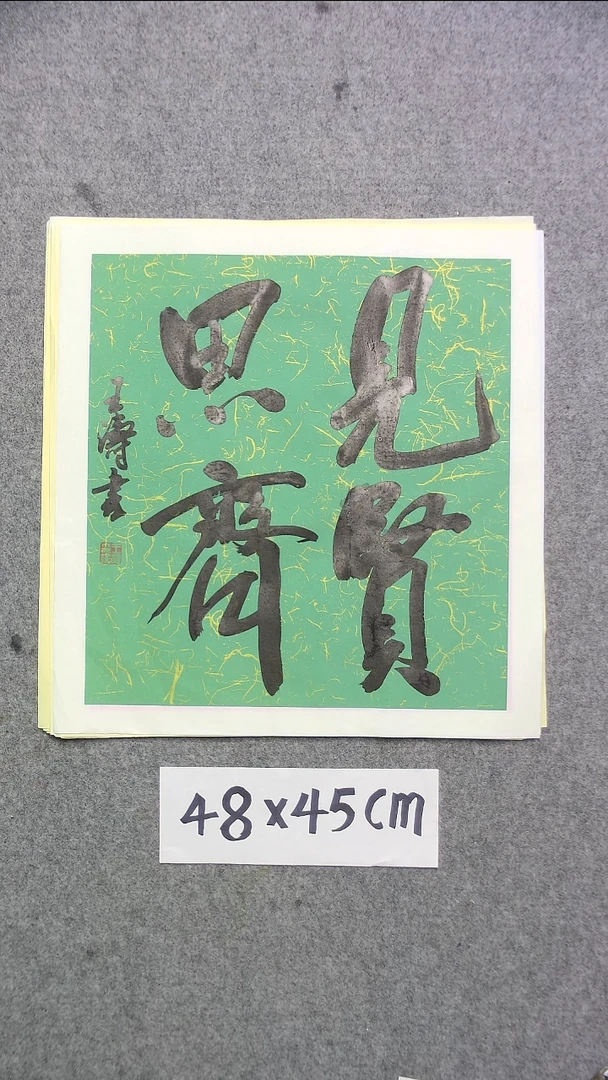 見賢
思齊
王濤書
48×45cm